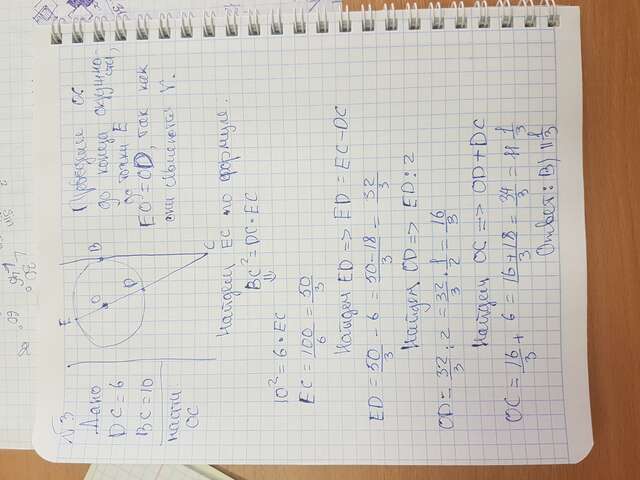 №3
Дано
DC = 6
BC = 10
найти
OC
E
O
D
B
C
Проведём OC
до конца окружно-
сти,
до точки E
EO = OD, так как
они являются r.
Найдем EC по формуле.
BC² = DC·EC
10² = 6·EC
EC = 100/6 = 50/3
Найдем ED => ED = EC-DC
ED = 50/3 - 6 = 50-18/3 = 32/3
Найдем OD => ED:2
OD = 32/3 : 2 = 32/3 · 1/2 = 16/3
Найдем OC => OD+DC
OC = 16/3 + 6 = 16+18/3 = 34/3 = 11 1/3
Ответ: В) 11 1/3